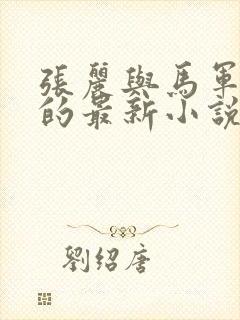 張麗與馬軍
的最新小說
劉紹唐